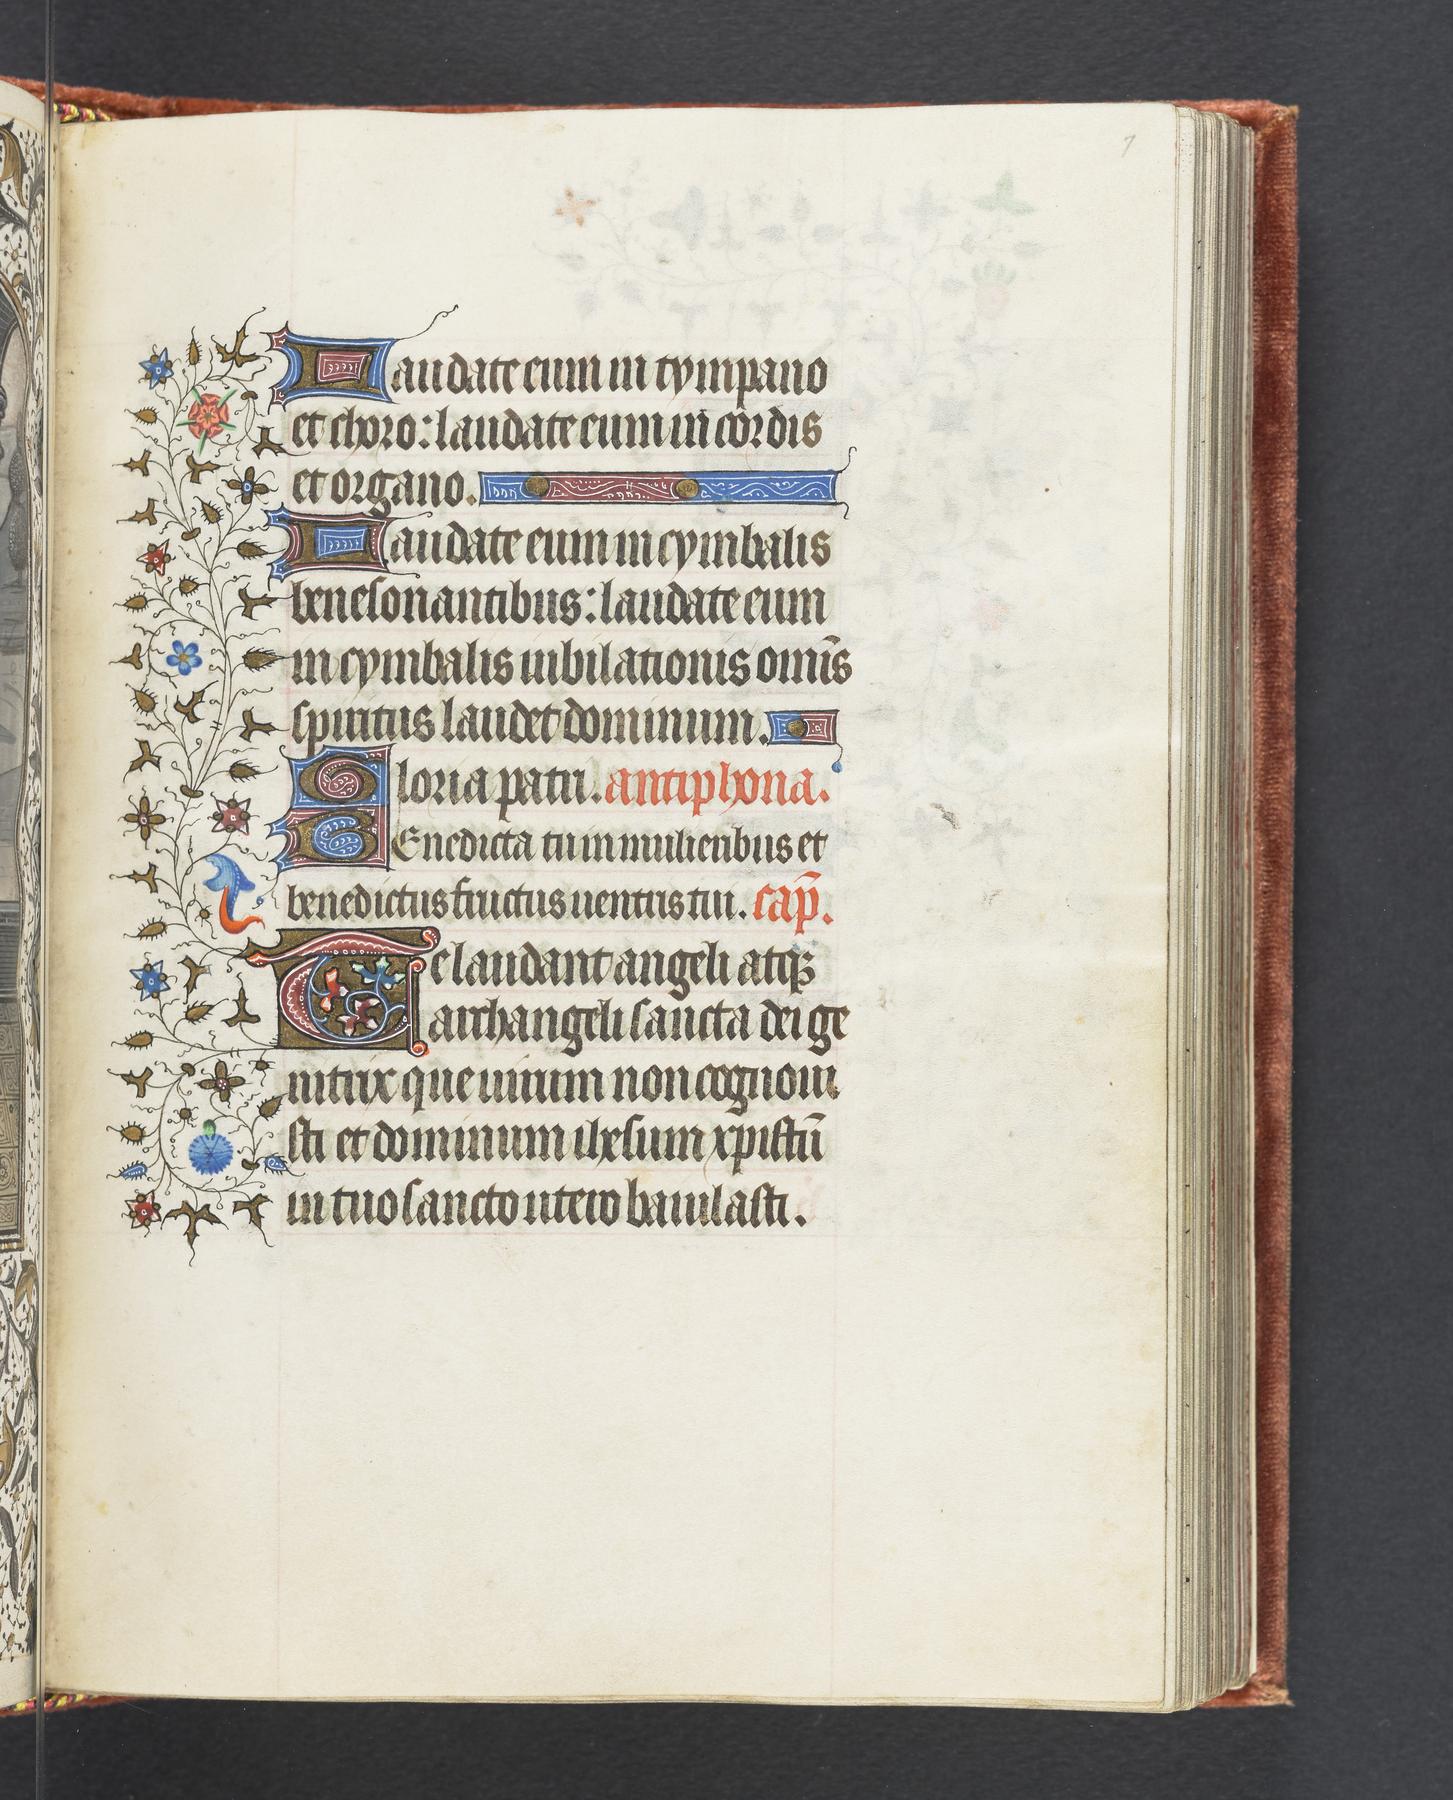 7
Laudate eum in tympano
et choro: laudate eum in cordis
et organo.
Laudate eum in cymbalis
benesonantibus: laudate eum
in cymbalis iubilationis omīs
spiritus laudet dominum.
Gloria patri. antiphona.
BEnedicta tu in mulieribus et
benedictus fructus uentris tui. cap̄.
Te laudant angeli atqꝫ
archangeli sancta dei ge
nitrix que uirum non cognoui
sti et dominum ihesum xpistū
in tuo sancto utero baiulasti.